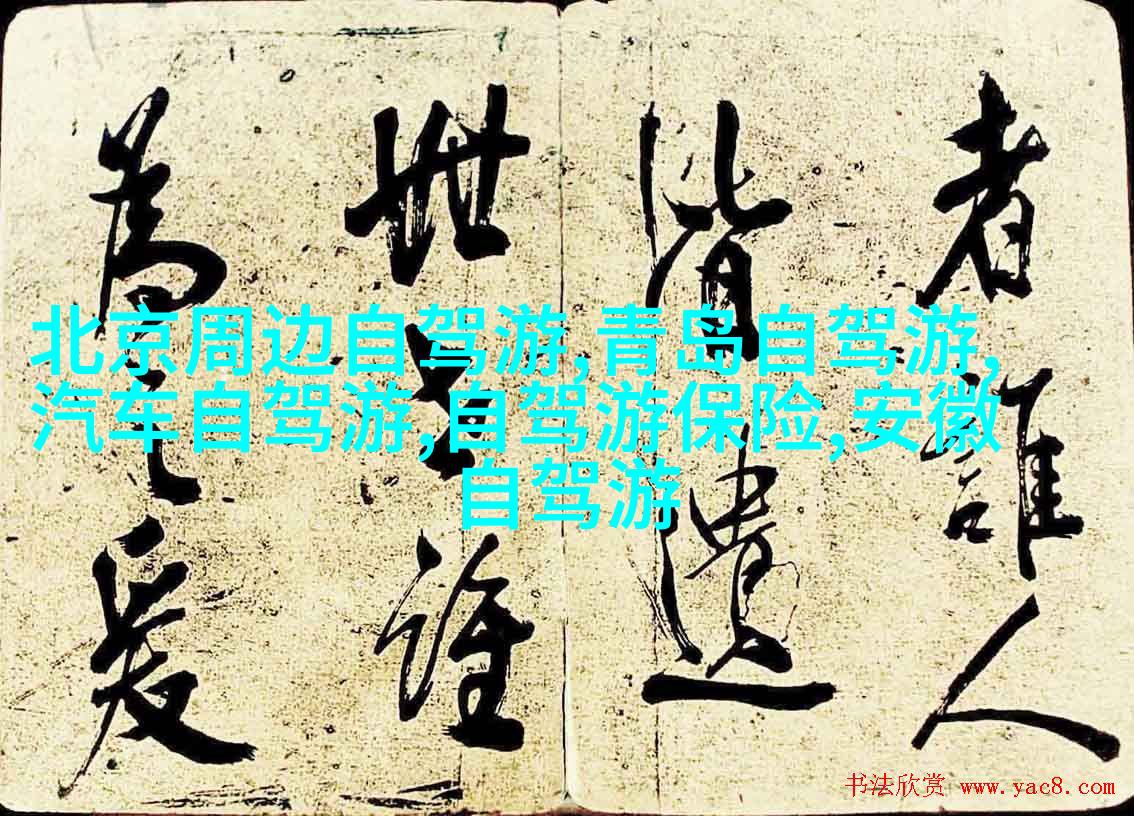 北京周边自驾游,青岛自驾游,
汽车自驾游,自驾游保险,安徽
自驾游
者誰人
皆遺
世誰
為之
书法欣赏 www.yac8.com